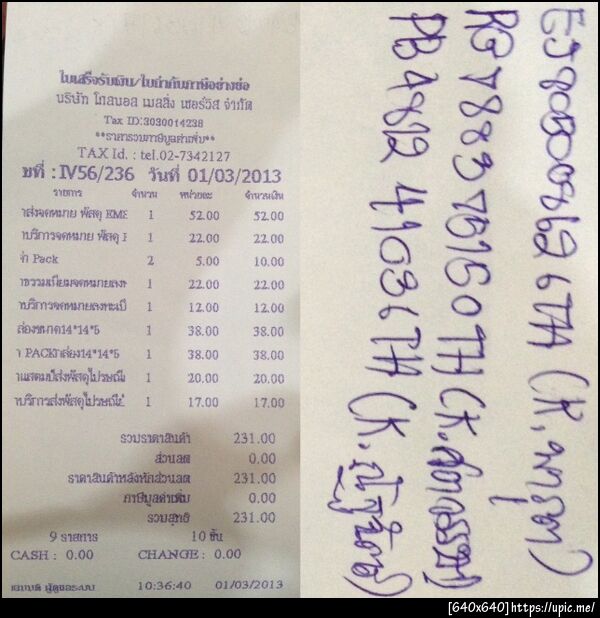 ใบเสร็จรับเงิน/ใบกำกับภาษีอย่างย่อ
บริษัท โกลบอล เมลลิ่ง เซอร์วิส จำกัด
Tax ID:3030014238
**ราคารวมภาษีมูลค่าเพิ่ม**
TAX Id. : tel.02-7342127
ขที่ : IV56/236 วันที่ 01/03/2013
รายการ จำนวน หน่วยละ จำนวนเงิน
าส่งจดหมาย พัสดุ EMS 1 52.00 52.00
าบริการจดหมาย พัสดุ 1 22.00 22.00
Pack 2 5.00 10.00
าธรรมเนียมจดหมายลงท 1 22.00 22.00
าบริการจดหมายลงทะเบี 1 12.00 12.00
ล่องขนาด14*14*5 1 38.00 38.00
า PACKกล่อง14*14*5 1 38.00 38.00
าแสตมป์ส่งพัสดุไปรษณีย 1 20.00 20.00
าบริการส่งพัสดุไปรษณีย์ 1 17.00 17.00
รวมราคาสินค้า 231.00
ส่วนลด 0.00
ราคาสินค้าหลังหักส่วนลด 231.00
ภาษีมูลค่าเพิ่ม 0.00
รวมสุทธิ 231.00
9 รายการ 10 ชิ้น
CASH : 0.00 CHANGE : 0.00
ผู้ดูแลระบบ 10:36:40 01/03/2013
TH (K.
RG 788375160 TH (K.
PB 4812 41636 TH (K.
[640x640] https://upic.me/